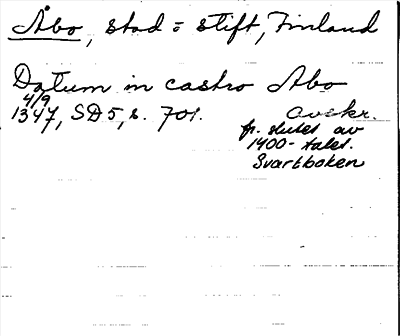 Åbo, stad = stift, Finland
Datum in castro Abo
4/9
1347, SD 5, s. 701. avskr.
fr. slutet av
1400-talet.
Svartboken